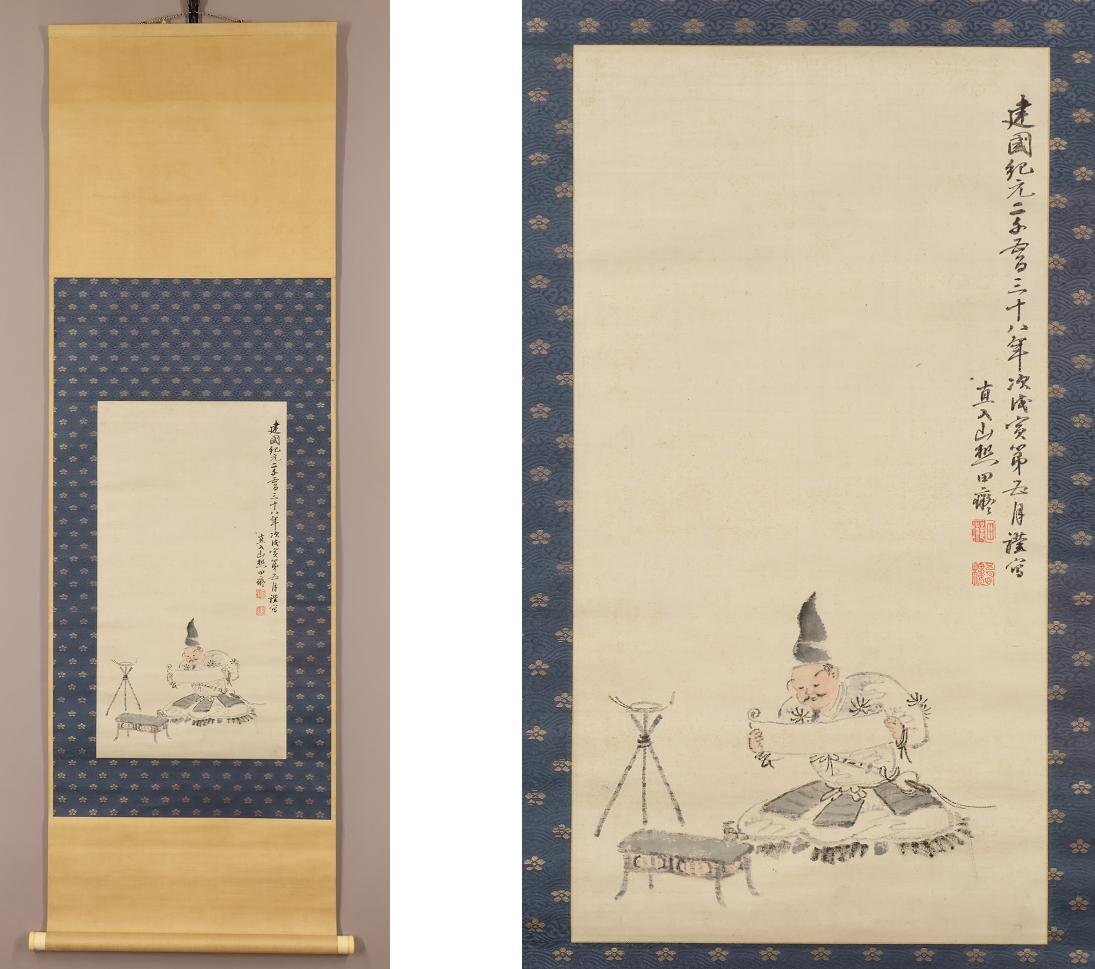 建國紀元二千五百三十八年次戊寅第五月謹写
直入山樵田癡
建國紀元二千五百三十八年次戊寅第五月謹写
直入山樵田癡